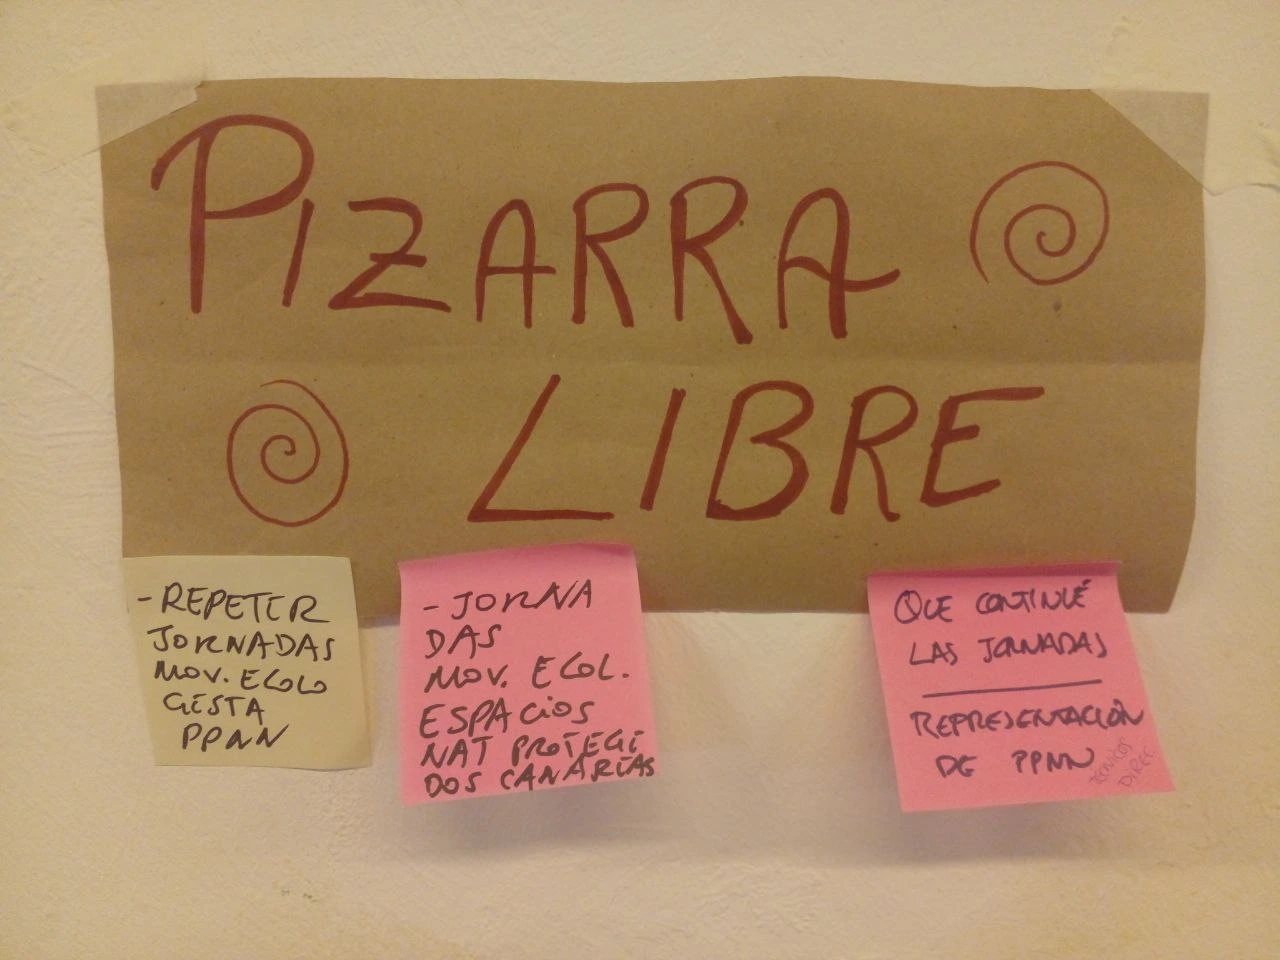 PIZARRA
LIBRE
- REPETIR
JORNADAS
MOV. ECOLO
GISTA
PPNN
- JORNA
DAS
MOV. ECOL.
ESPACIOS
NAT PROTEGI
DOS CANARIAS
QUE CONTINUÉ
LAS JORNADAS
REPRESENTACIÓN
DE PPNN
TECNICOS
DIREC.